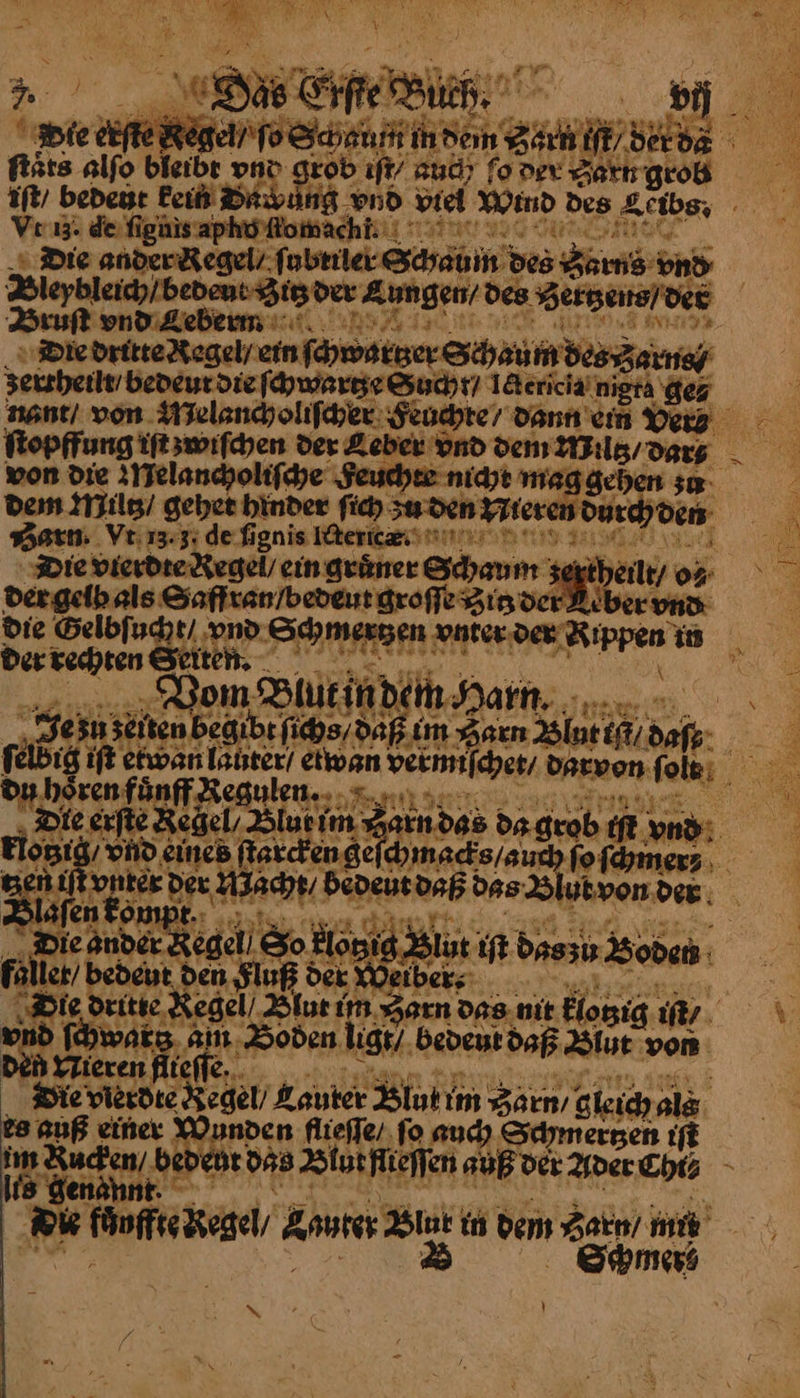 Das Erſte Buch. vij
Die erſte Regel/ ſo Schaum in dem Harn iſt/ der da
ſtåts alſo bleibt vnd grob iſt/ auch ſo der Harn grob
iſt/ bedeut kein Dawung vnd viel Wind des Leibs,
Vt 13. de ſignis apho ſtomachi.
Die ander Regel/ ſubtiler Schaum des Harns vnd
Bleybleich/ bedeut Hitz der Lungen/ des Hertzens/ der
Bruſt vnd Lebern
Die dritte Regel/ ein ſchwartzer Schaum des Harns/
zertheilt/ bedeut die ſchwartze Sucht/ Ictericia nigra ge⸗
nant/ von Melancholiſcher Feuchte/ dann ein Ver⸗
ſtopffung iſt zwiſchen der Leber vnd dem Miltz/ dar⸗
von die Melancholiſche Feuchte nicht mag gehen zu
dem Miltz/ gehet hinder ſich zu den Nieren durch den
Harn. Vt. 13. 3. de ſignis Ictericæ.
Die vierdte Regel/ ein grůner Schaum zertheilt/ o⸗
der gelb als Saffran/ bedeut groſſe Hitz der Leber vnd
die Gelbſucht/ vnd Schmertzen vnter der Rippen in
der rechten Seiten.
Vom Blut in dem Harn.
Je zu zeiten begibt ſichs/ daß im Harn Blut iſt/ daſ⸗
ſelbig iſt etwan lauter/ etwan vermiſchet/ darvon ſolt
du hören fůnff Regulen.
Die erſte Regel/ Blut im Harn das da grob iſt vnd
klotzig/ vnd eines ſtarcken geſchmacks/ auch ſo ſchmer⸗
tzen iſt vnter der Macht/ bedeut daß das Blut von der
Blaſen kompt.
Die ander Regel/ So klotzig Blut iſt das zu Boden
fallet/ bedeut den Fluß der Weiber.
Die dritte Regel/ Blut im Harn das nit klotzig iſt/
vnd ſchwartz am Boden ligt/ bedeut daß Blut von
den Nieren flieſſe.
Die vierdte Regel/ Lauter Blut im Harn/ gleich als
es auß einer Wunden flieſſe/ ſo auch Schmertzen iſt
im Rucken/ bedeut das Blut flieſſen auß der Ader Chi⸗
lis genannt.
Die fůnffte Regel/ Lauter Blut in dem Harn/ mit
B Schmer⸗